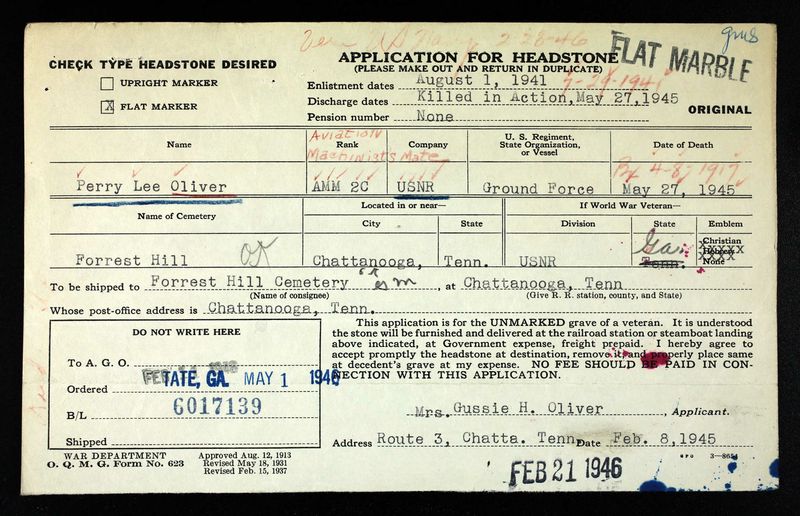 2-28-46
gms
CHECK TYPE HEADSTONE DESIRED
UPRIGHT MARKER
X FLAT MARKER
APPLICATION FOR HEADSTONE
(PLEASE MAKE OUT AND RETURN IN DUPLICATE)
FLAT MARBLE
Enlistment dates August 1, 1941
Discharge dates Killed in Action, May 27, 1945
Pension number None
ORIGINAL
Name
Aviation
Machinist's Mate
Rank
Company
U. S. Regiment,
State Organization,
or Vessel
Date of Death
Perry Lee Oliver AMM 2C USNR Ground Force May 27, 1945
Name of Cemetery
Located in or near—
City
State
If World War Veteran—
Division
State
Emblem
Forrest Hill Chattanooga, Tenn. USNR Ga. Tenn.
Christian
Hebrew
None
XXXXX
XXXX
To be shipped to Forrest Hill Cemetery, at Chattanooga, Tenn
(Name of consignee) (Give R. R. station, county, and State)
Whose post-office address is Chattanooga, Tenn.
DO NOT WRITE HERE
To A. G. O.
Ordered TATE, GA. MAY 1 1946
B/L 6017139
Shipped
This application is for the UNMARKED grave of a veteran. It is understood
the stone will be furnished and delivered at the railroad station or steamboat landing
above indicated, at Government expense, freight prepaid. I hereby agree to
accept promptly the headstone at destination, remove it, and properly place same
at decedent's grave at my expense. NO FEE SHOULD BE PAID IN CON-
NECTION WITH THIS APPLICATION.
Mrs. Gussie H. Oliver, Applicant.
Address Route 3, Chatta. Tenn. Date Feb. 8, 1945
WAR DEPARTMENT
O. Q. M. G. Form No. 623
Approved Aug. 12, 1913
Revised May 18, 1931
Revised Feb. 15, 1937
FEB 21 1946
GPO